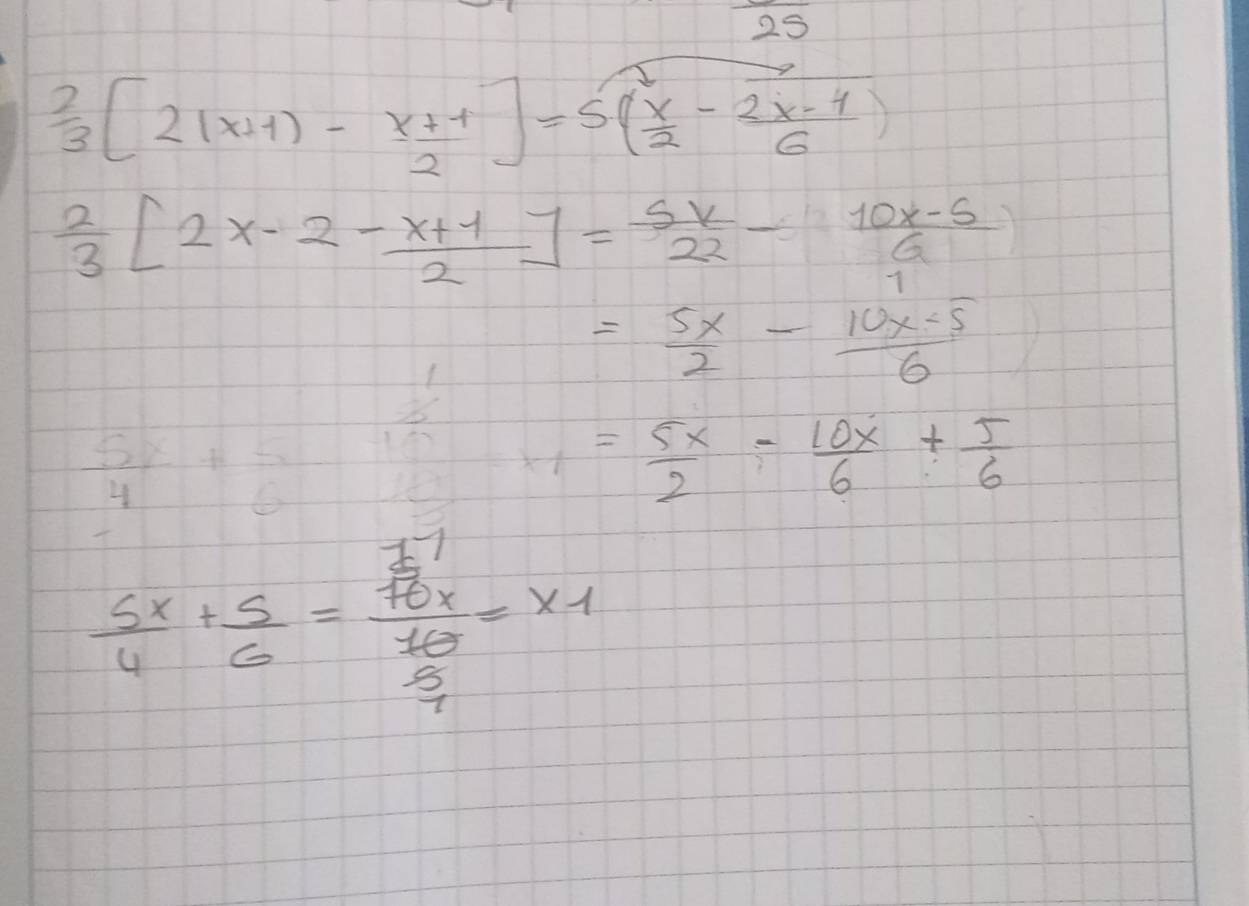 25
2/3 [ 2(x+1) - x+1/2 ] = 5 (x/2 - 2x-1/6)
2/3 [ 2x - 2 - x+1/2 ] = 5x/22 - 10x-5/6
1
= 5x/2 - 10x-5/6
= 5x/2 - 10x/6 + 5/6
5x/4 + 5/6 = 10x/10 = x1